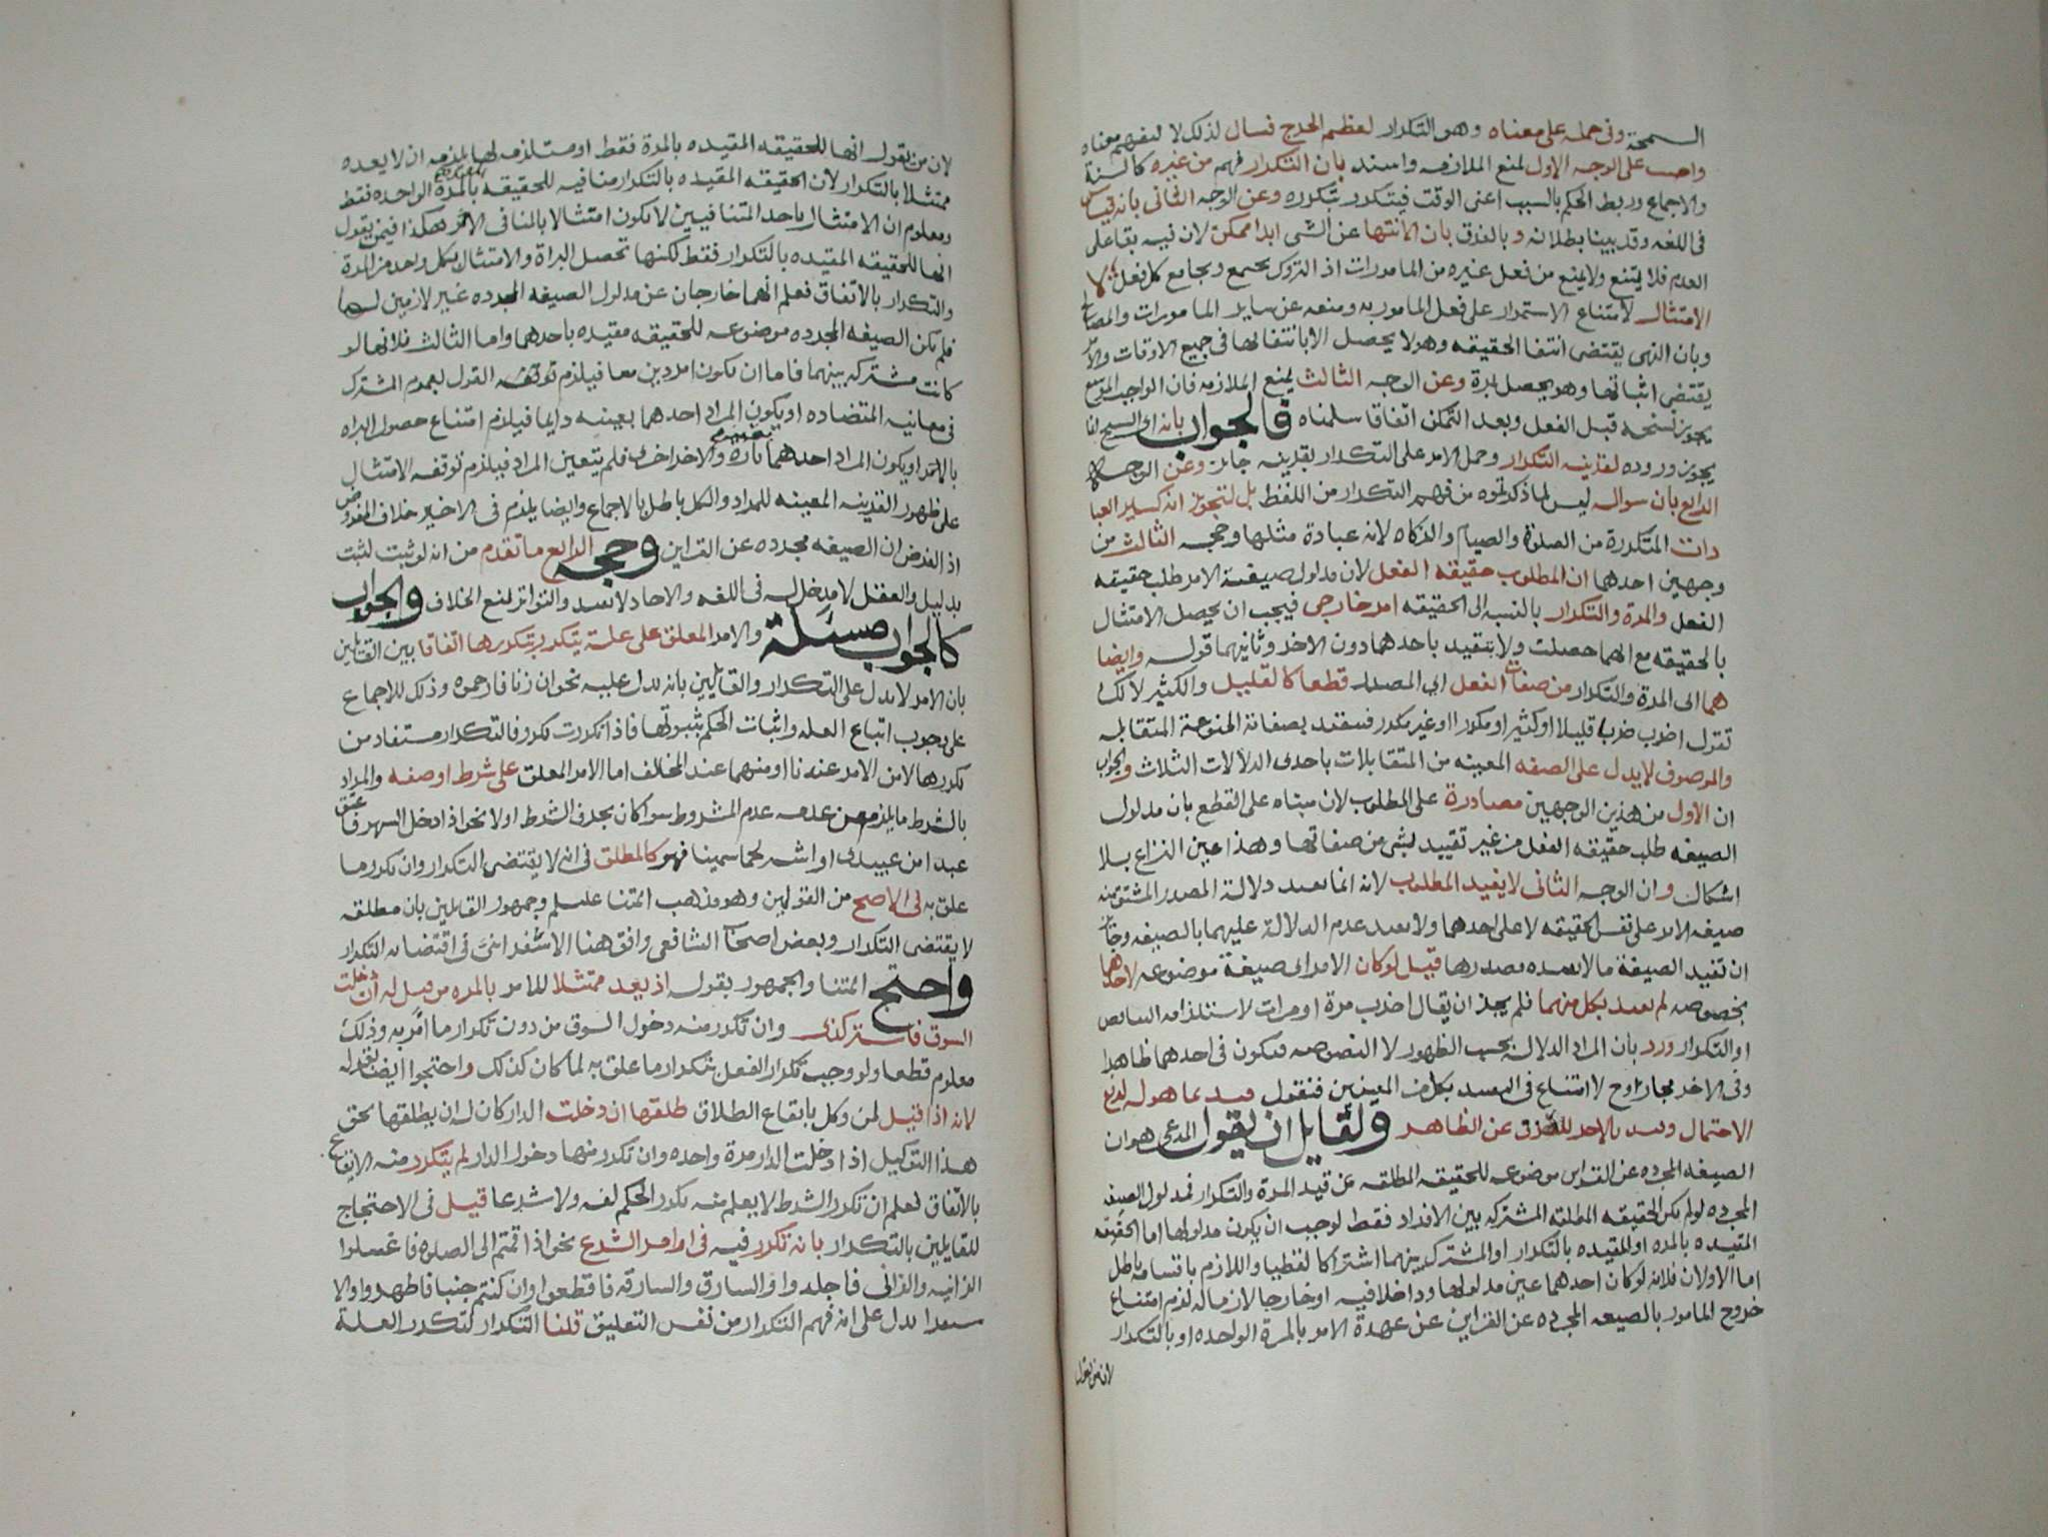 السمحة وفى حمله على معناه وهو التكرار لعظم الحرج فسال لذلك لا لفهم معناه
واجيب على الوجه الاول لمنع الملازمه واسند بان التكرار فهم من غيره كالسنة
والاجماع وربط الحكم بالسبب اعنى الوقت فيتكرر بتكرره وعن الوجه الثانى بانه قياس
فى اللغه وقد بينا بطلانه وبالفرق بان الانتها عن الشى ابدا ممكن لان فيه بقا على
العدم فلا يمتنع ولا يمنع من فعل غيره من المامورات اذ التروك تجتمع وتجامع كل فعل لا
الامتثال لامتناع الاستمرار على فعل المامور به ومنعه عن ساير المامورات والمصالح
وبان النهى يقتضى انتفا الحقيقه وهو لا يحصل الا بانتفائها فى جميع الاوقات والامر
يقتضى اثباتها وهو يحصل بمرة وعن الوجه الثالث بمنع الملازمه فان الواجب الموسع
يجوز نسخه قبل الفعل وبعد التمكن اتفاقا سلمناه فالجواب بانه اى النسخ انما
يجوز وروده لقرينه التكرار وحمل الامر على التكرار بقرينه جايز وعن الوجه
الرابع بان سواله ليس لما ذكرتموه من فهم التكرار من اللفظ بل لتجويز انه كساير العبا
دات المتكررة من الصلوة والصيام والزكاه لانه عبادة مثلها وحجه الثالث من
وجهين احدهما ان المطلوب حقيقه الفعل لان مدلول صيغة الامر طلب حقيقه
الفعل والمرة والتكرار بالنسبه الى الحقيقه امر خارجى فيجب ان يحصل الامتثال
بالحقيقه مع ايهما حصلت ولا يتقيد باحدهما دون الاخر وثانيهما قوله وايضا
هما اى المرة والتكرار من صفات الفعل اى المصدر قطعا كالقليل والكثير لانك
تقول اضرب ضربا قليلا او كثيرا او مكررا او غير مكرر فتقيد بصفاته المتنوعة المتقابله
والموصوف لا يدل على الصفه المعينه من المتقابلات باحدى الدلالات الثلاث والجواب
ان الاول من هذين الوجهين مصادرة على المطلوب لان مبناه على القطع بان مدلول
الصيغه طلب حقيقه الفعل من غير تقييد بشى من صفاتها وهذا عين النزاع بلا
اشكال وان الوجه الثانى لا يفيد المطلوب لانه انما يفيد دلالة المصدر المشتق منه
صيغه الامر على نفس الحقيقه لا على احدهما ولا يفيد عدم الدلالة عليهما بالصيغه وجاز
ان تفيد الصيغة ما لا يفيده مصدرها قيل لو كان الامر اى صيغة موضوعه لاحدهما
بخصوصه لم يقيد بكل منهما فلم يجز ان يقال اضرب مرة او مرات لاستلزامه التناقض
او التكرار ورد بان المراد الدلاله بحسب الظهور لا النصوصه فيكون فى احدهما ظاهرا
وفى الاخر مجازا وح لا امتناع فى التقييد بكل من المعنيين فنقول قيد بما هو له لدفع
الاحتمال وقيد بالاخر للصرف عن الظاهر ولقايل ان يقول المدعى هو ان
الصيغه المجرده عن القراين موضوعه للحقيقه المطلقه عن قيد المرة والتكرار فمدلول الصيغه
المجرده لو لم يكن الحقيقه المطلقه المشتركه بين الافراد فقط لوجب ان يكون مدلولها اما الحقيقه
المقيده بالمره او المقيده بالتكرار او المشترك بينهما اشتراكا لفظيا واللازم باقسامه باطل
اما الاولان فلانه لو كان احدهما عين مدلولها وداخلا فيه او خارجا لازما له لزم امتناع
خروج المامور بالصيغه المجرده عن القراين عن عهدة الامر بالمرة الواحده او بالتكرار
لان من يقول
لان من يقول انها للحقيقه المقيده بالمرة فقط او مستلزمه لها يلزمه ان لا يعده
ممتثلا بالتكرار لان الحقيقه المقيده بالتكرار منافيه للحقيقه المقيده بالمرة الواحده فقط
ومعلوم ان الامتثال باحد المتنافيين لا يكون امتثالا بالمنافى الاخر وهكذا فيمن يقول
انها للحقيقه المقيده بالتكرار فقط لكنها تحصل البراة والامتثال بكل واحد من المرة
والتكرار بالاتفاق فعلم انهما خارجان عن مدلول الصيغه المجرده غير لازمين لها
فلم تكن الصيغه المجرده موضوعه للحقيقه مقيده باحدهما واما الثالث فلانها لو
كانت مشتركه بينهما فاما ان يكونا مرادين معا فيلزم توقفه القول بعموم المشترك
فى معانيه المتضاده او يكون المراد احدهما بعينه دايما فيلزم امتناع حصول البراه
بالاخر او يكون المراد احدهما بعينه تارة والاخر اخرى فلم يتعين المراد فيلزم توقف الامتثال
على ظهور القرينه المعينه للمراد والكل باطل بالاجماع وايضا يلزم فى الاخير خلاف المفروض
اذ الفرض ان الصيغه مجرده عن القراين وحجه الرابع ما تقدم من انه لو ثبت لثبت
بدليل والعقل لا مدخل له فى اللغه والاحاد لا تفيد والتواتر يمنع الخلاف والجواب
كالجواب مسئلة والامر المعلق على علة يتكرر بتكررها اتفاقا بين القائلين
بان الامر لا يدل على التكرار والقايلين بانه يدل عليه نحو ان زنا فارجموه وذلك للاجماع
على وجوب اتباع العله واثبات الحكم بثبوتها فاذا تكررت تكرر فالتكرار مستفاد من
تكررها لا من الامر عندنا او منهما عند المخالف اما الامر المعلق على شرط او صفه والمراد
بالشرط ما يلزم من عدمه عدم المشروط سوا كان بحرف الشرط او لا نحو اذا دخل الشهر فاعتق
عبدا من عبيدى او اشتر لحما سمينا فهو كالمطلق فى انه لا يقتضى التكرار وان تكرر ما
علق به فى الاصح من القولين وهو مذهب ائمتنا عليهم وجمهور القايلين بان مطلقه
لا يقتضى التكرار وبعض اصحاب الشافعى وافق هنا الاسفراينى فى اقتضائه التكرار
واحتج ائمتنا والجمهور بقوله اذ يعد ممتثلا للامر بالمره من قيل له ان دخلت
السوق فاشتر كذى وان تكرر منه دخول السوق من دون تكرار ما امر به وذلك
معلوم قطعا ولو وجب تكرار الفعل بتكرار ما علق به لما كان كذلك واحتجوا ايضا بقوله
لانه اذا قيل لمن وكل بايقاع الطلاق طلقها ان دخلت الدار كان له ان يطلقها بحق
هذا التوكيل اذا دخلت الدار مرة واحده وان تكرر منها دخول الدار لم يتكرر منه الايقاع
بالاتفاق فعلم ان تكرر الشرط لا يعلم منه تكرر الحكم لغه ولا شرعا قيل فى الاحتجاج
للقايلين بالتكرار بانه تكرر فيه فى اوامر الشرع نحو اذا قمتم الى الصلوه فاغسلوا
الزانيه والزانى فاجلدوا والسارق والسارقه فاقطعوا وان كنتم جنبا فاطهروا والا
ستقرا يدل على انه فهم التكرار من نفس التعليق قلنا التكرار لتكرر العلة